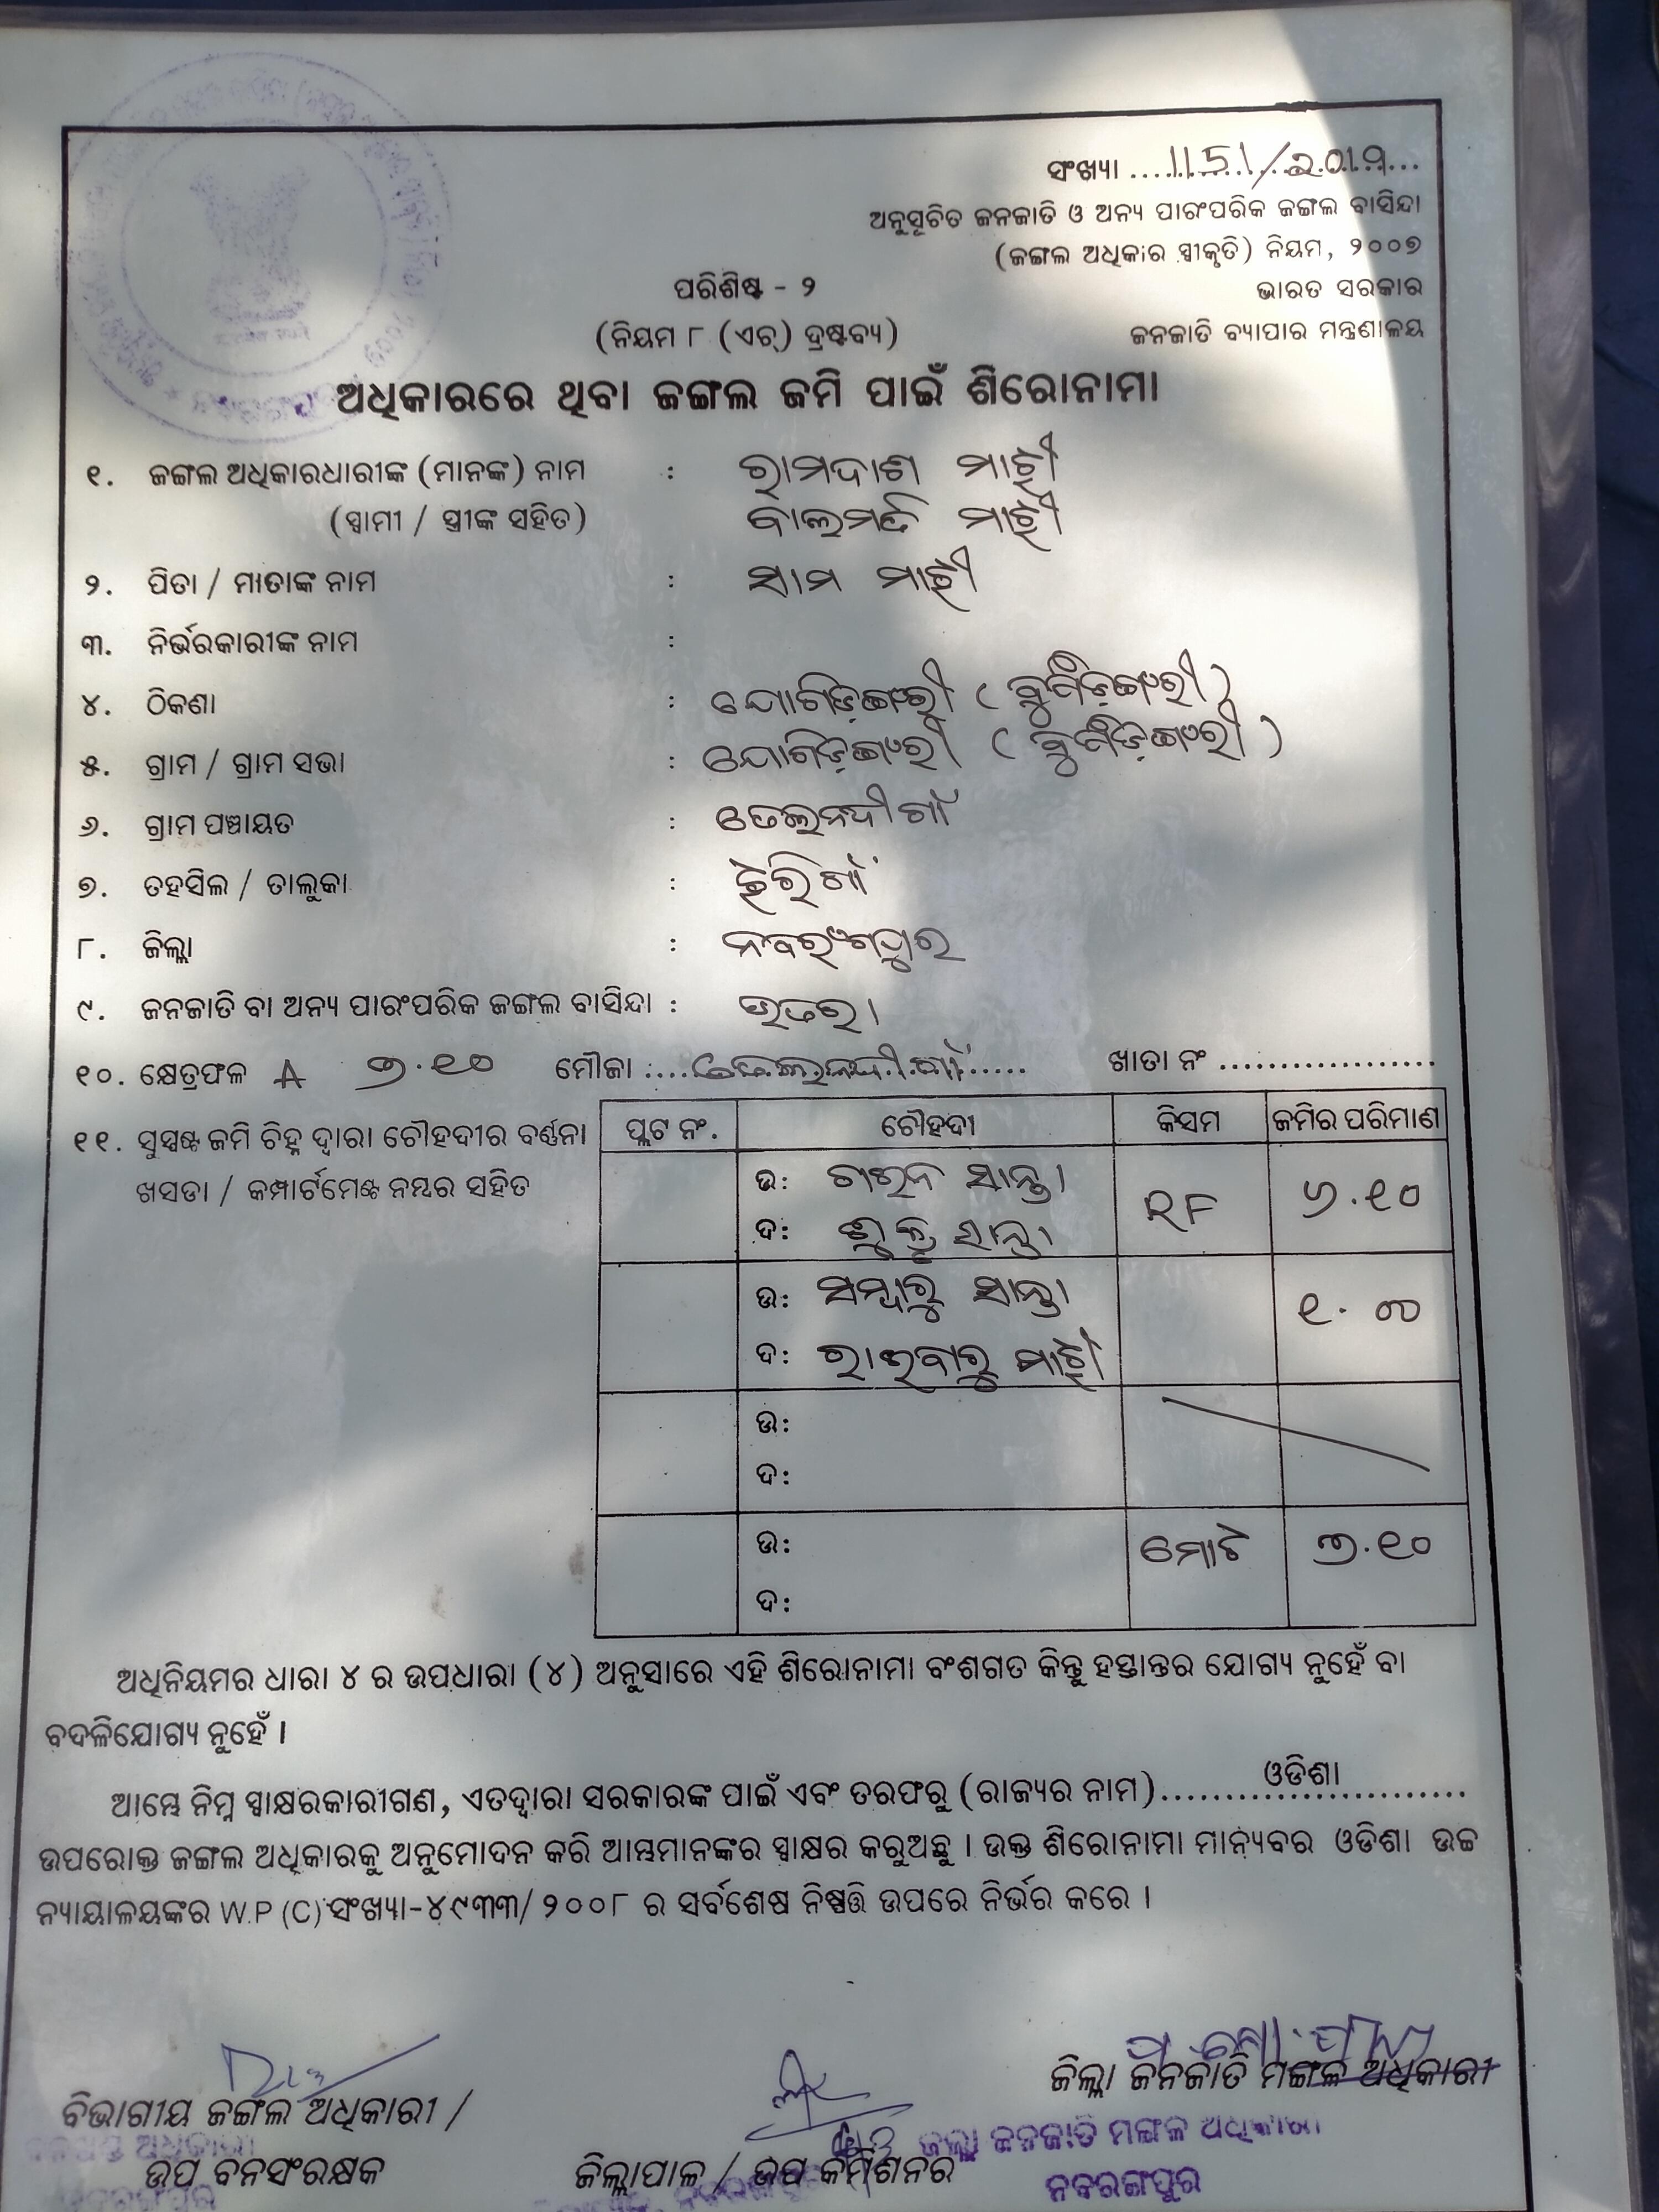 ସଂଖ୍ୟା ....1151/୨0୧୨...
ଅନୁସୂଚିତ ଜନଜାତି ଓ ଅନ୍ୟ ପାରଂପରିକ ଜଙ୍ଗଲ ବାସିନ୍ଦା
(ଜଙ୍ଗଲ ଅଧିକାର ସ୍ୱୀକୃତି) ନିୟମ, ୨୦୦୭
ପରିଶିଷ୍ଟ - ୨ ଭାରତ ସରକାର
(ନିୟମ ୮ (ଏଚ୍) ଦ୍ରଷ୍ଟବ୍ୟ) ଜନଜାତି ବ୍ୟାପାର ମନ୍ତ୍ରଣାଳୟ
ଅଧିକାରରେ ଥିବା ଜଙ୍ଗଲ ଜମି ପାଇଁ ଶିରୋନାମା
୧. ଜଙ୍ଗଲ ଅଧିକାରଧାରୀଙ୍କ (ମାନଙ୍କ) ନାମ : ରାମଦାଶ ମାଝୀ
(ସ୍ୱାମୀ / ସ୍ତ୍ରୀଙ୍କ ସହିତ) ବାଲମତି ମାଝୀ
୨. ପିତା / ମାତାଙ୍କ ନାମ : ସାମ ମାଝୀ
୩. ନିର୍ଭରକାରୀଙ୍କ ନାମ :
୪. ଠିକଣା :
୫. ଗ୍ରାମ / ଗ୍ରାମ ସଭା :
୬. ଗ୍ରାମ ପଞ୍ଚାୟତ : ତେଲନଦୀଗାଁ
୭. ତହସିଲ / ତାଲୁକା : ଝରିଗାଁ
୮. ଜିଲ୍ଲା : ନବରଂଗପୁର
୯. ଜନଜାତି ବା ଅନ୍ୟ ପାରଂପରିକ ଜଙ୍ଗଲ ବାସିନ୍ଦା : ଭତରା
୧୦. କ୍ଷେତ୍ରଫଳ A ୭.୧୦ ମୌଜା :....ତେଲନଦୀଗାଁ..... ଖାତା ନଂ ..................
୧୧. ସୁସ୍ପଷ୍ଟ ଜମି ଚିହ୍ନ ଦ୍ୱାରା ଚୌହଦୀର ବର୍ଣ୍ଣନା ପ୍ଲଟ ନଂ. ଚୌହଦୀ କିସମ ଜମିର ପରିମାଣ
ଖସଡା / କମ୍ପାର୍ଟମେଣ୍ଟ ନମ୍ବର ସହିତ
ଉ: ସାନ୍ତା RF ୬.୧୦
ଦ: ସାନ୍ତା
ଉ: ସମ୍ବାରୁ ସାନ୍ତା ୧.୦୦
ଦ: ରାଇବାରୁ ମାଝୀ
ଉ:
ଦ:
ଉ: ମୋଟ ୭.୧୦
ଦ:
ଅଧିନିୟମର ଧାରା ୪ ର ଉପଧାରା (୪) ଅନୁସାରେ ଏହି ଶିରୋନାମା ବଂଶଗତ କିନ୍ତୁ ହସ୍ତାନ୍ତର ଯୋଗ୍ୟ ନୁହେଁ ବା
ବଦଳିଯୋଗ୍ୟ ନୁହେଁ ।
ଆମ୍ଭେ ନିମ୍ନ ସ୍ୱାକ୍ଷରକାରୀଗଣ, ଏତଦ୍ୱାରା ସରକାରଙ୍କ ପାଇଁ ଏବଂ ତରଫରୁ (ରାଜ୍ୟର ନାମ)........ଓଡିଶା............
ଉପରୋକ୍ତ ଜଙ୍ଗଲ ଅଧିକାରକୁ ଅନୁମୋଦନ କରି ଆମ୍ଭମାନଙ୍କର ସ୍ୱାକ୍ଷର କରୁଅଛୁ । ଉକ୍ତ ଶିରୋନାମା ମାନ୍ୟବର ଓଡିଶା ଉଚ୍ଚ
ନ୍ୟାୟାଳୟଙ୍କର W.P (C) ସଂଖ୍ୟା-୪୯୩୩/ ୨୦୦୮ ର ସର୍ବଶେଷ ନିଷ୍ପତ୍ତି ଉପରେ ନିର୍ଭର କରେ ।
ଜିଲ୍ଲା ଜନଜାତି ମଙ୍ଗଳ ଅଧିକାରୀ
ବିଭାଗୀୟ ଜଙ୍ଗଲ ଅଧିକାରୀ /
ଜିଲ୍ଲା ଜନଜାତି ମଙ୍ଗଳ ଅଧିକାରୀ
ଉପ ବନସଂରକ୍ଷକ ଜିଲ୍ଲାପାଳ / ଉପ କମିଶନର
ନବରଙ୍ଗପୁର